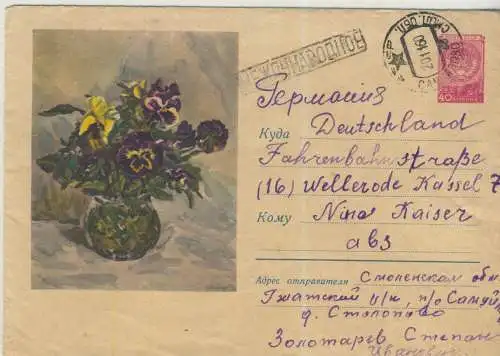 МЕЖДУНАРОДНОЕ
40
Германия
Куда Deutschland
Fahrenbahnstraße
(16) Wellerode Kassel 7
Кому Nina Kaiser
авз
Адрес отправителя Смоленская обл
Гжатский п/о Самуй
д. Столбово
Золотарев Степан
Иванович